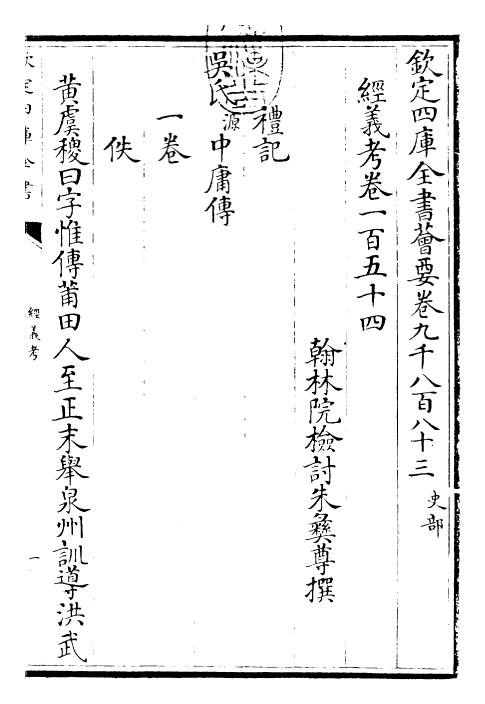 欽定四庫全書薈要卷九千八百八十三 史部
經義考卷一百五十四
翰林院檢討朱彝尊撰
禮記
吳氏源中庸傳
一卷
佚
黄虞稷曰字惟傳莆田人至正末舉泉州訓導洪武
欽定四庫全書
經義考
一